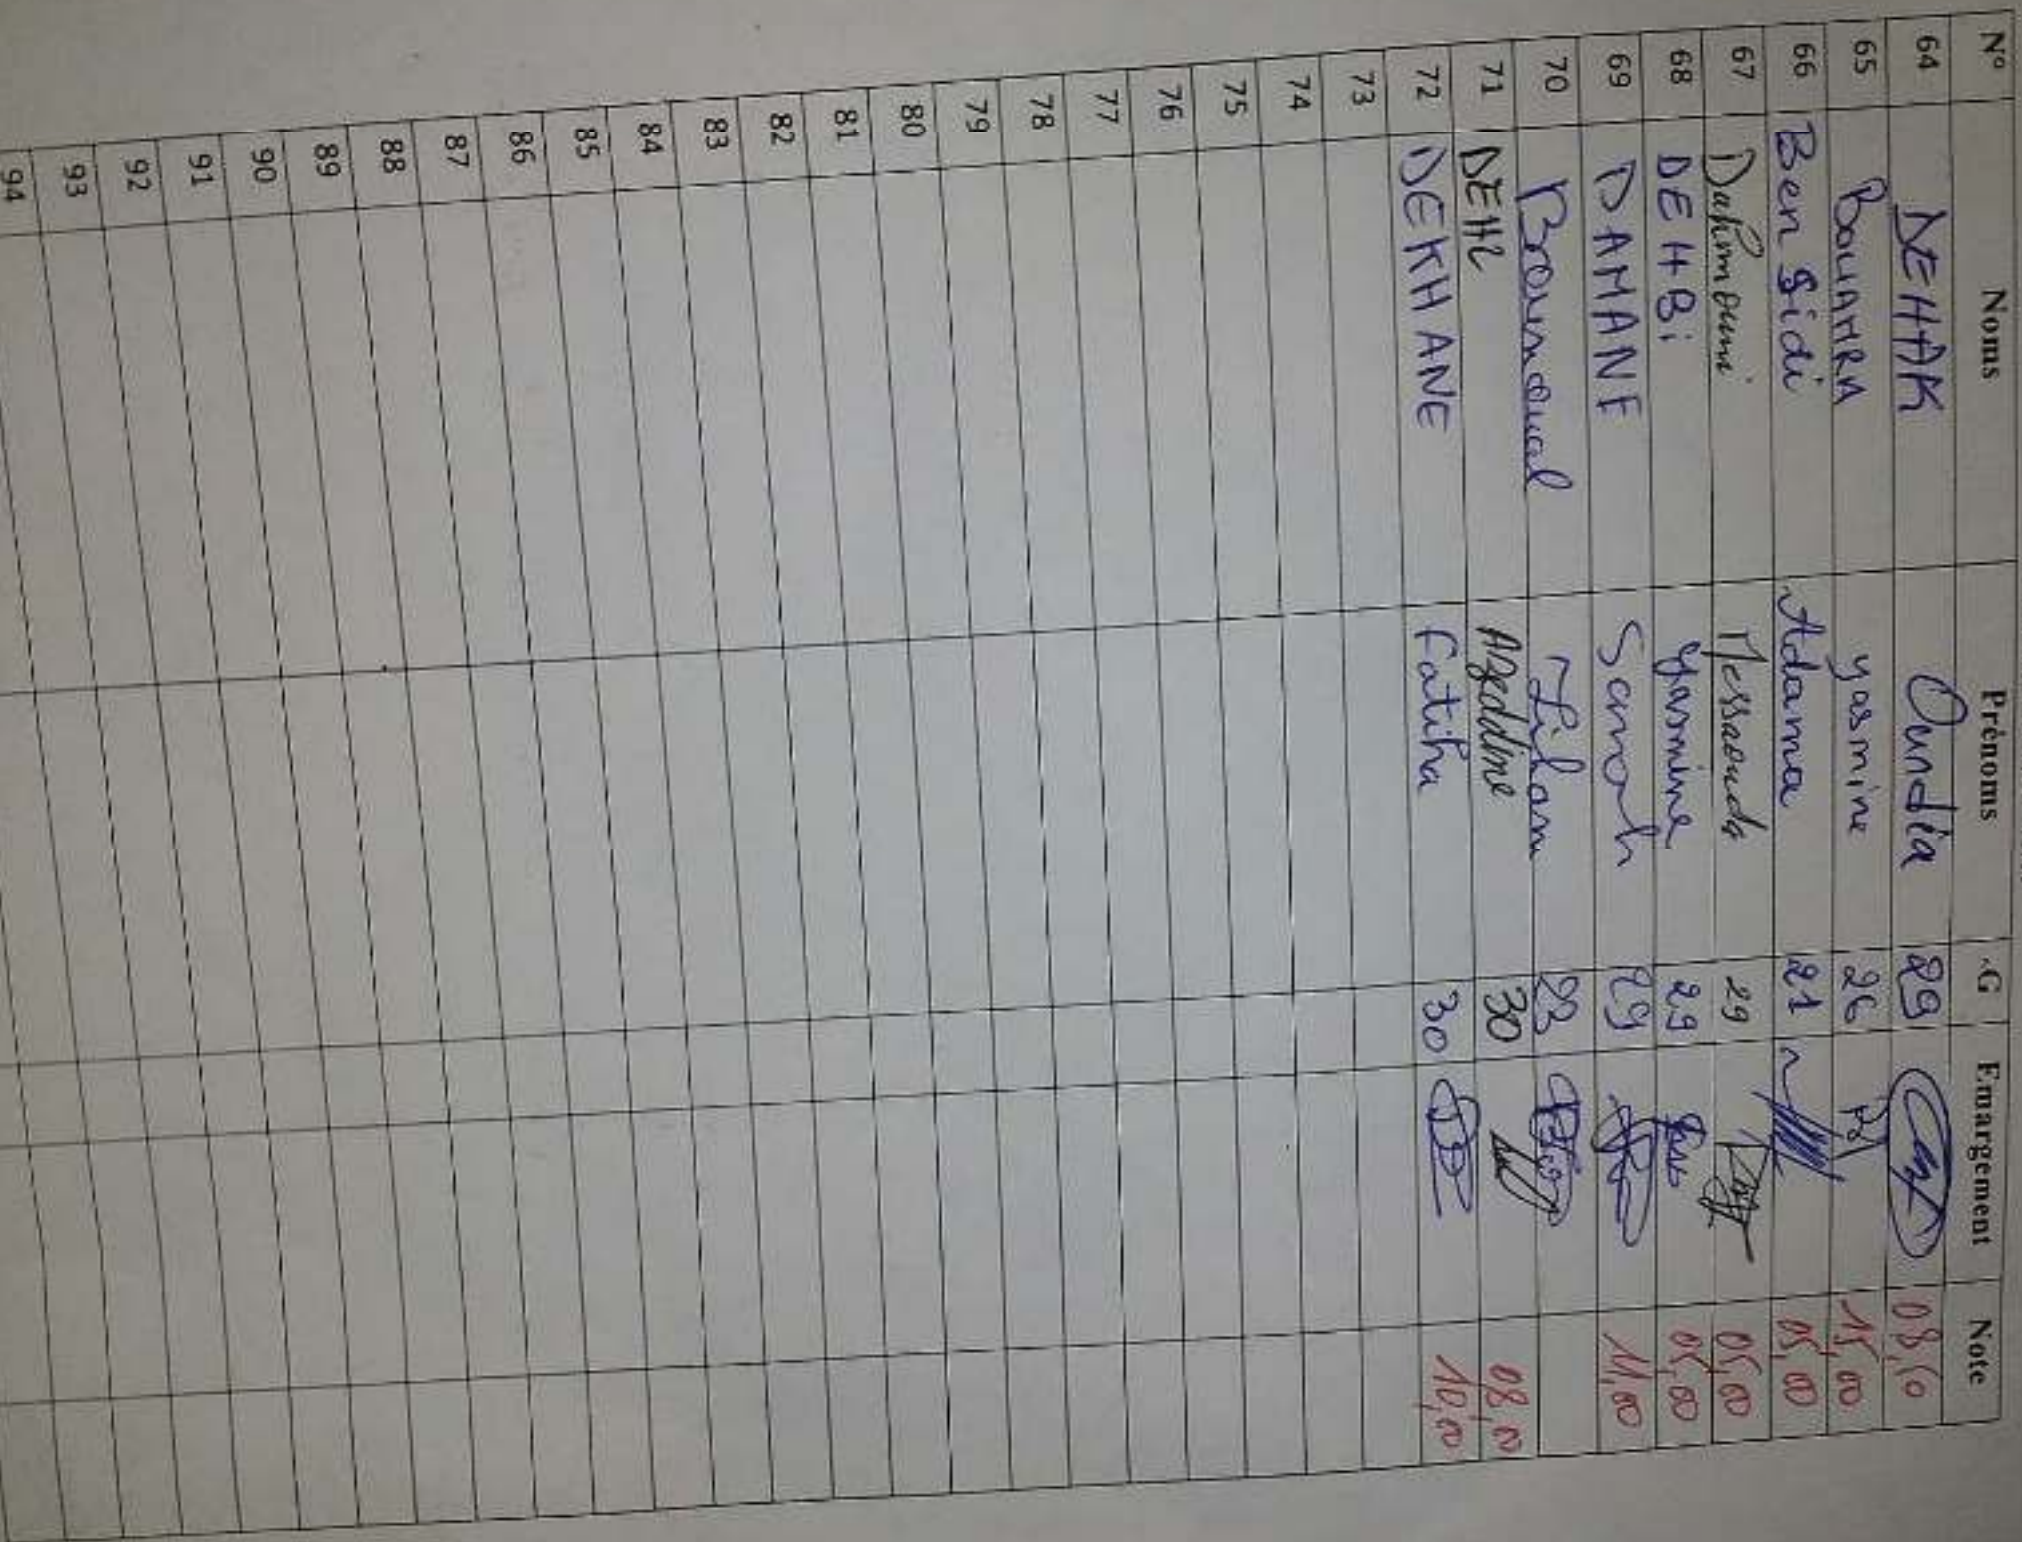 N° Noms Prénoms G Emargement Note
64 DEHAK Ourdia 29 08,50
65 BOUAHRA yasmine 26 15,00
66 Ben Sidi Adama 21 05,00
67 Dahmouni Messaouda 29 05,00
68 DEHBi Yasmine 29 05,00
69 DAMANE Samah 29 11,00
70 23
71 DEHL Azeddine 30 08,00
72 DEKHANE Fatiha 30 10,00
73
74
75
76
77
78
79
80
81
82
83
84
85
86
87
88
89
90
91
92
93
94